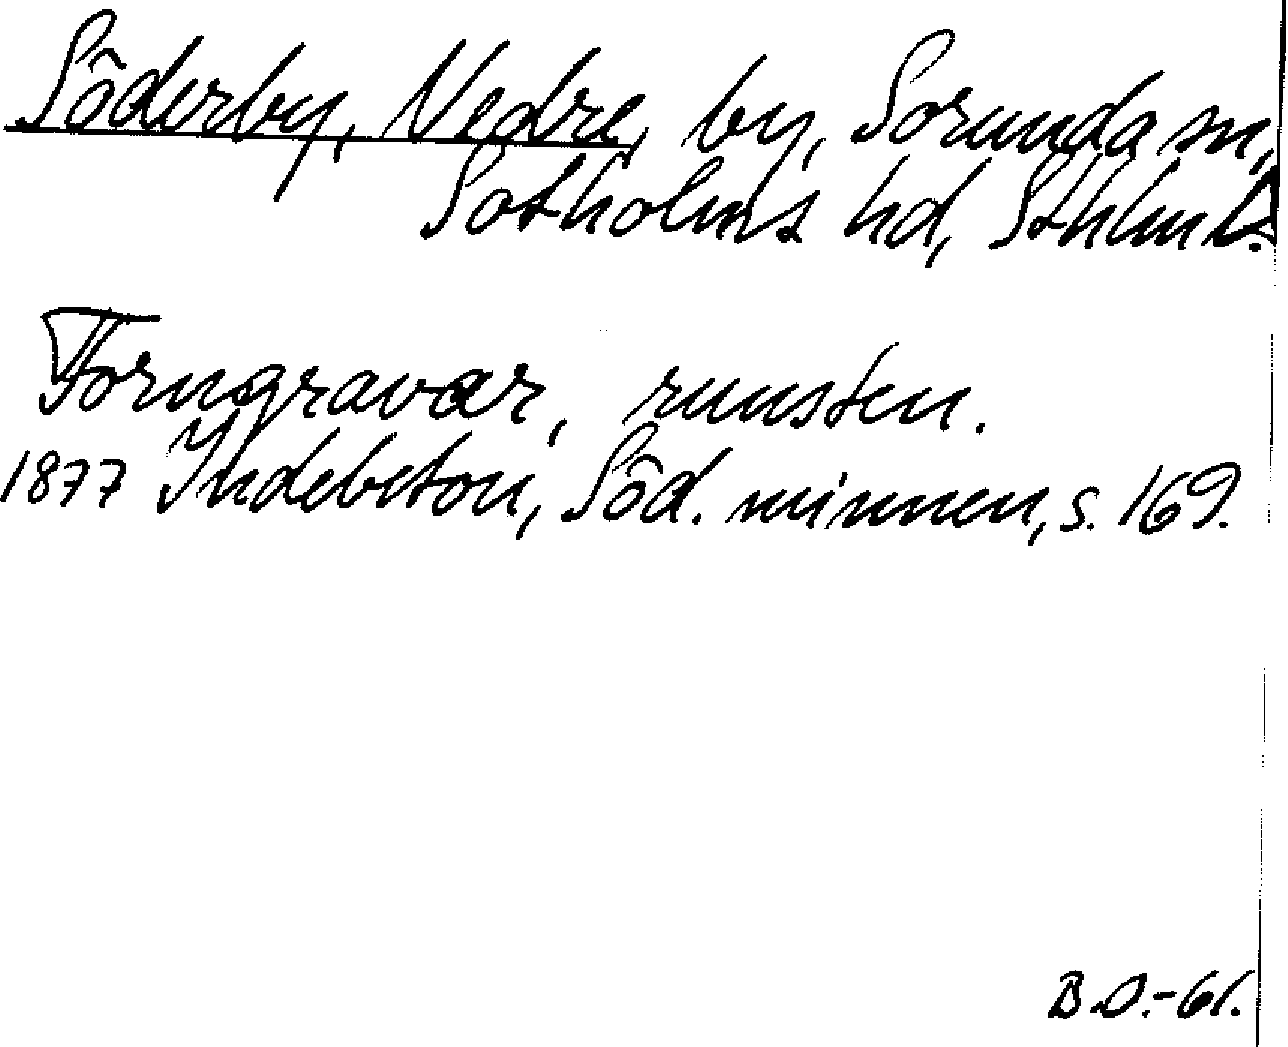 Söderby, Nedre, by, Sorunda sn,
Sotholms hd, Sthlm l.
Forngravar, runsten.
1877 Indebetou, Söd. minnen, s. 169.
B.O.-61.